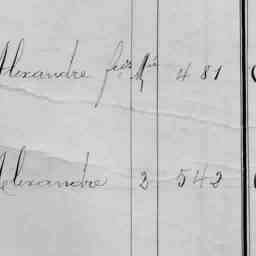 Alexandre 481
Alexandre 2 542